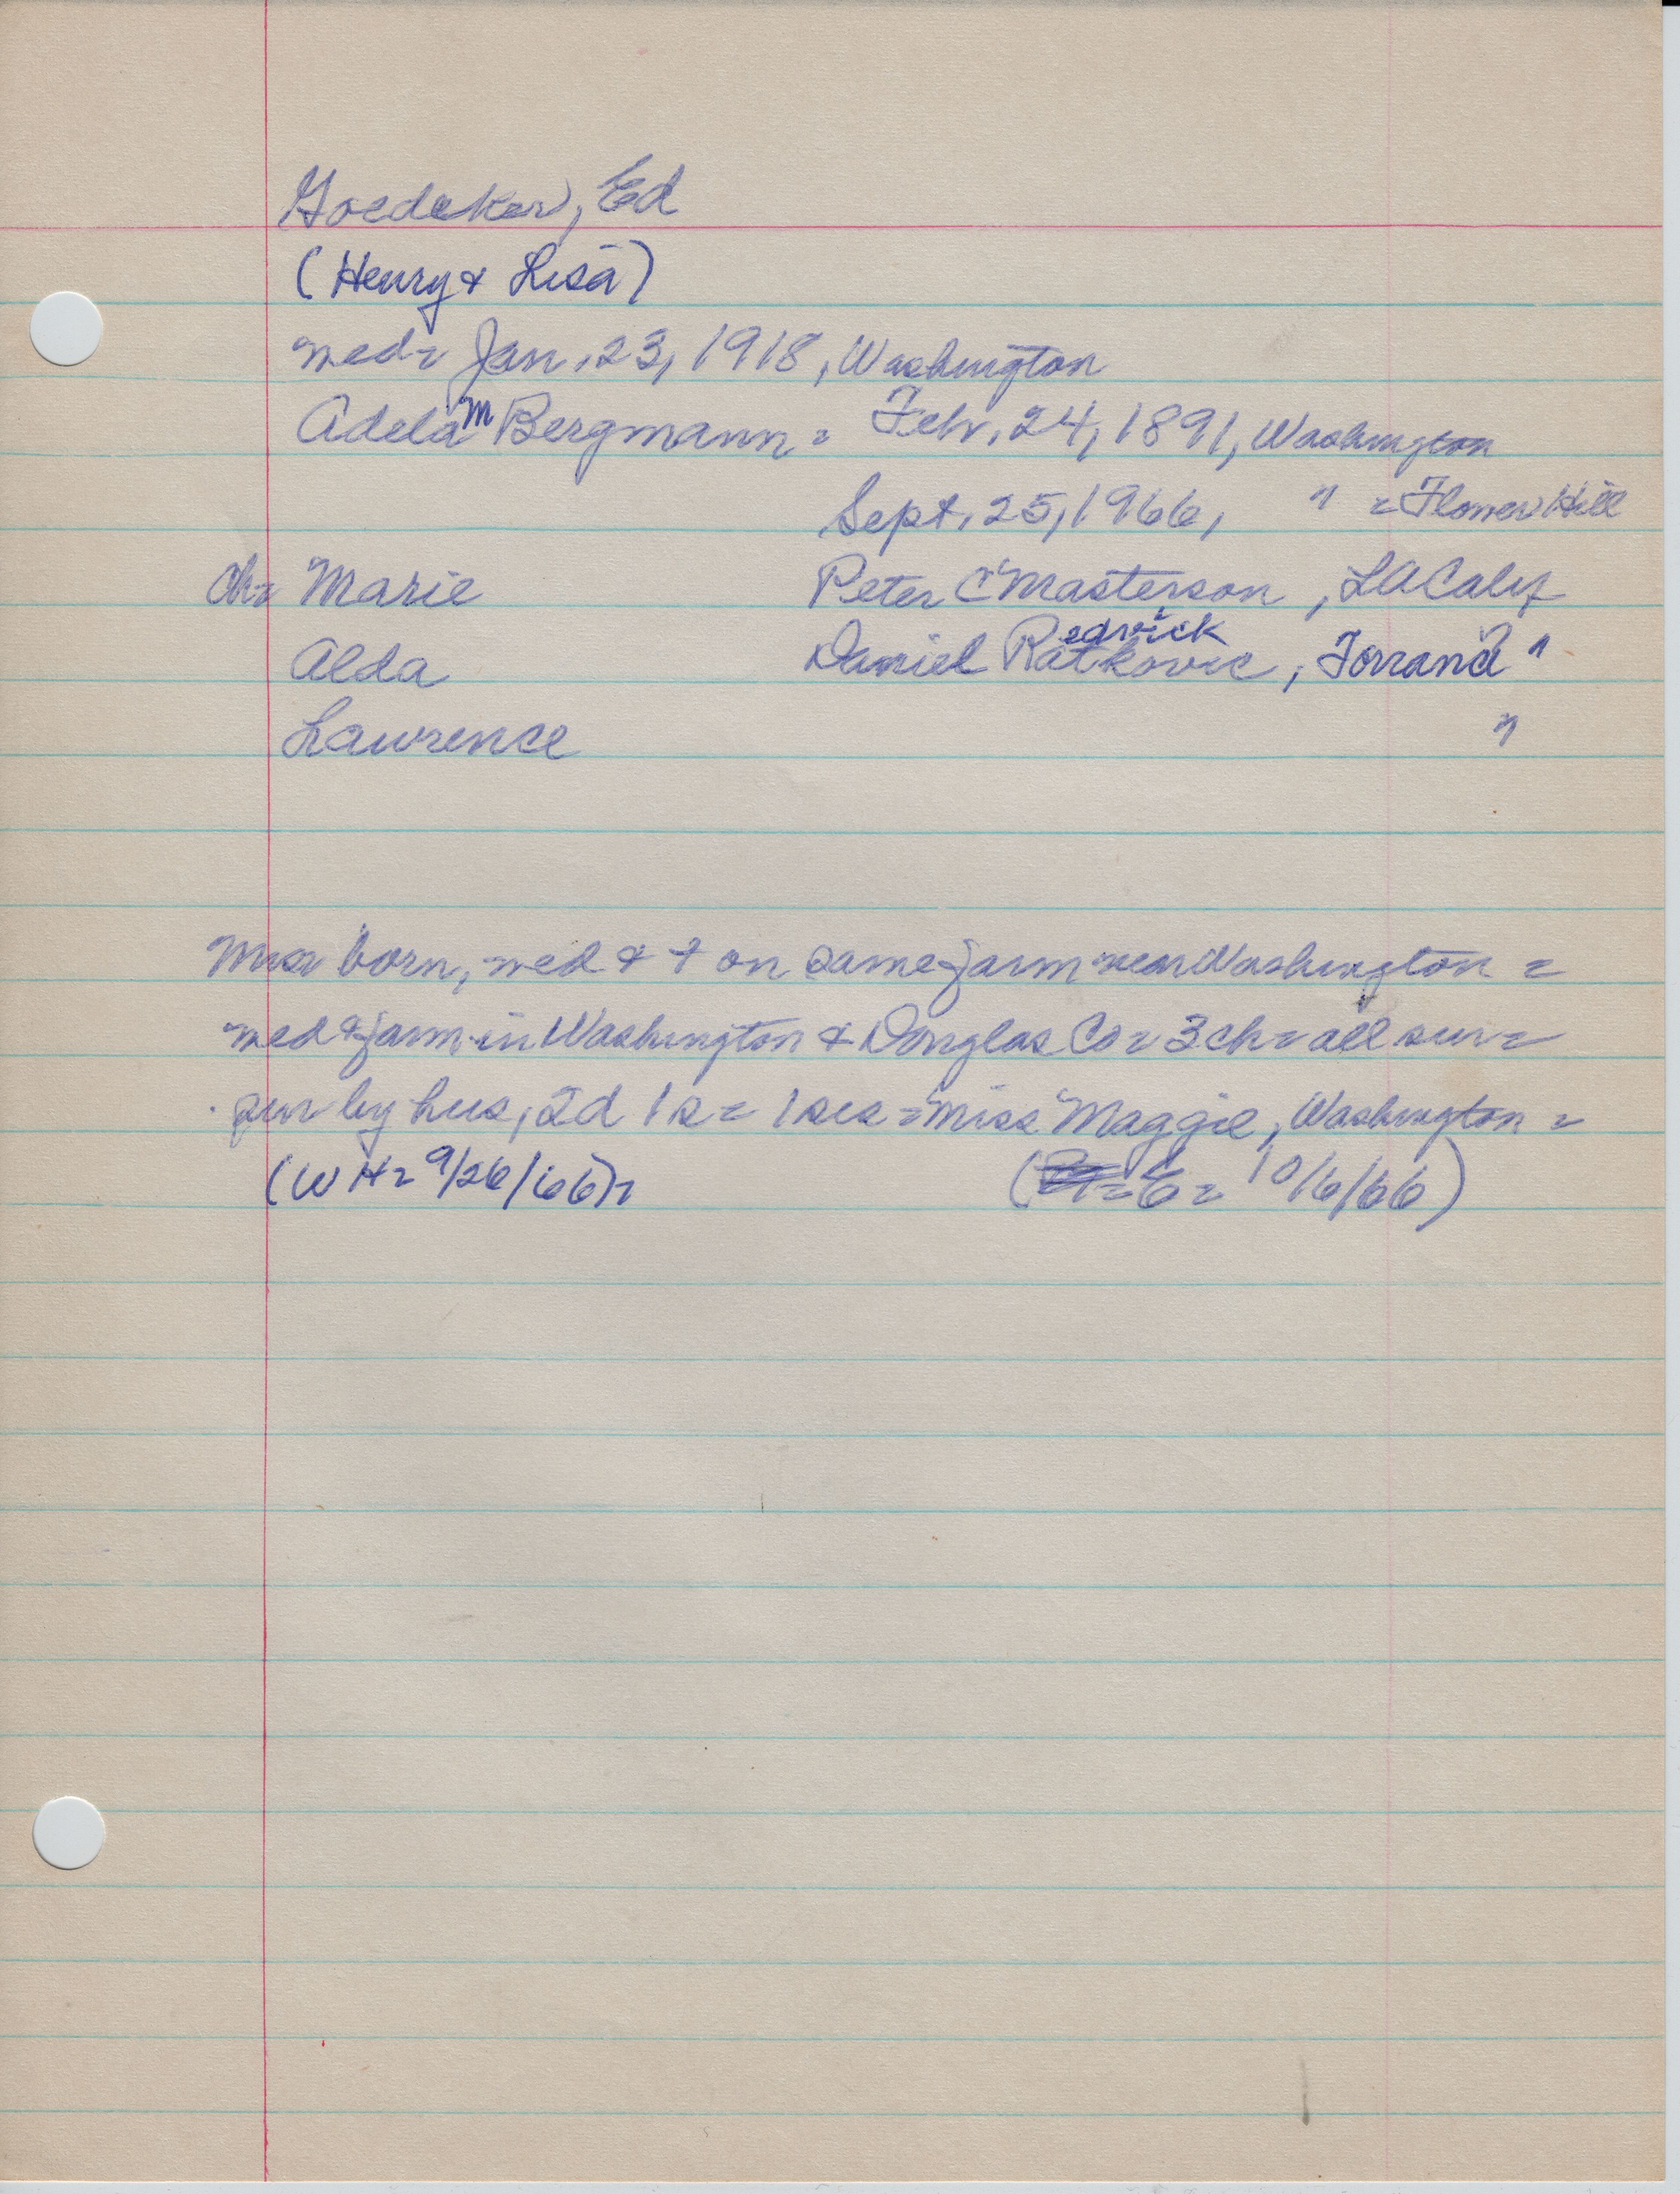 Goedeker, Ed
(Henry & Lisa)
wed= Jan. 23, 1918, Washington
Adela M Bergmann = Feb. 24, 1891, Washington
Sept. 25, 1966, " = Flower Hill
ch= Marie Peter C Masterson, LA Calif
Alda Daniel Ratkovic edvick, Torrance "
Lawrence "
Mrs born, wed & † on same farm near Washington =
wed & farm in Washington & Douglas Co = 3 ch = all sur =
sur by hus, 2d 1s = 1 sis = Miss Maggie, Washington =
(WH= 9/26/66)= ( = 10/6/66)